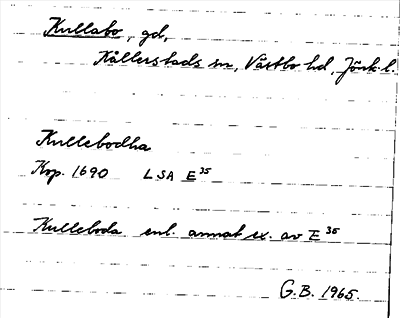 Kullabo, gd,
Kållerstads sn, Västbo hd, Jönk. l.
Kullebodha
Kop. 1690 LSA E 35
Kulleboda enl. annat ex. av E 35
G.B. 1965.